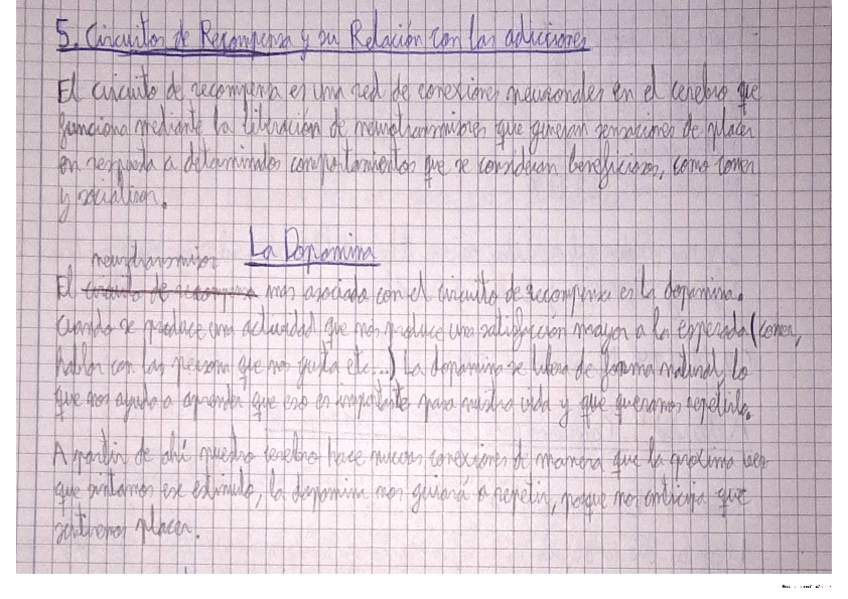 5. Circuitos de Recompensa y su Relación con las adicciones
El circuito de recompensa es una red de conexiones neuronales en el cerebro que
funciona mediante la liberación de neurotransmisores que generan sensaciones de placer
en respuesta a determinados comportamientos que se consideran beneficiosos, como comer
y socializar.
La Dopamina
neurotransmisor
El circuito de recompensa mas asociado con el circuito de recompensa es la dopamina.
Cuando se produce una actividad que nos produce una satisfacción mayor a la esperada (comer,
hablar con las persona que nos gusta etc...) La dopamina se libera de forma natural, lo
que nos ayuda a aprender que eso es importante para nuestra vida y que queramos repetirlo.
A partir de ahí nuestro cerebro hace nuevas conexiones de manera que la proxima vez
que sintamos ese estimulo, la dopamina nos guiará a repetir, porque nos anticipa que
sentiremos placer.